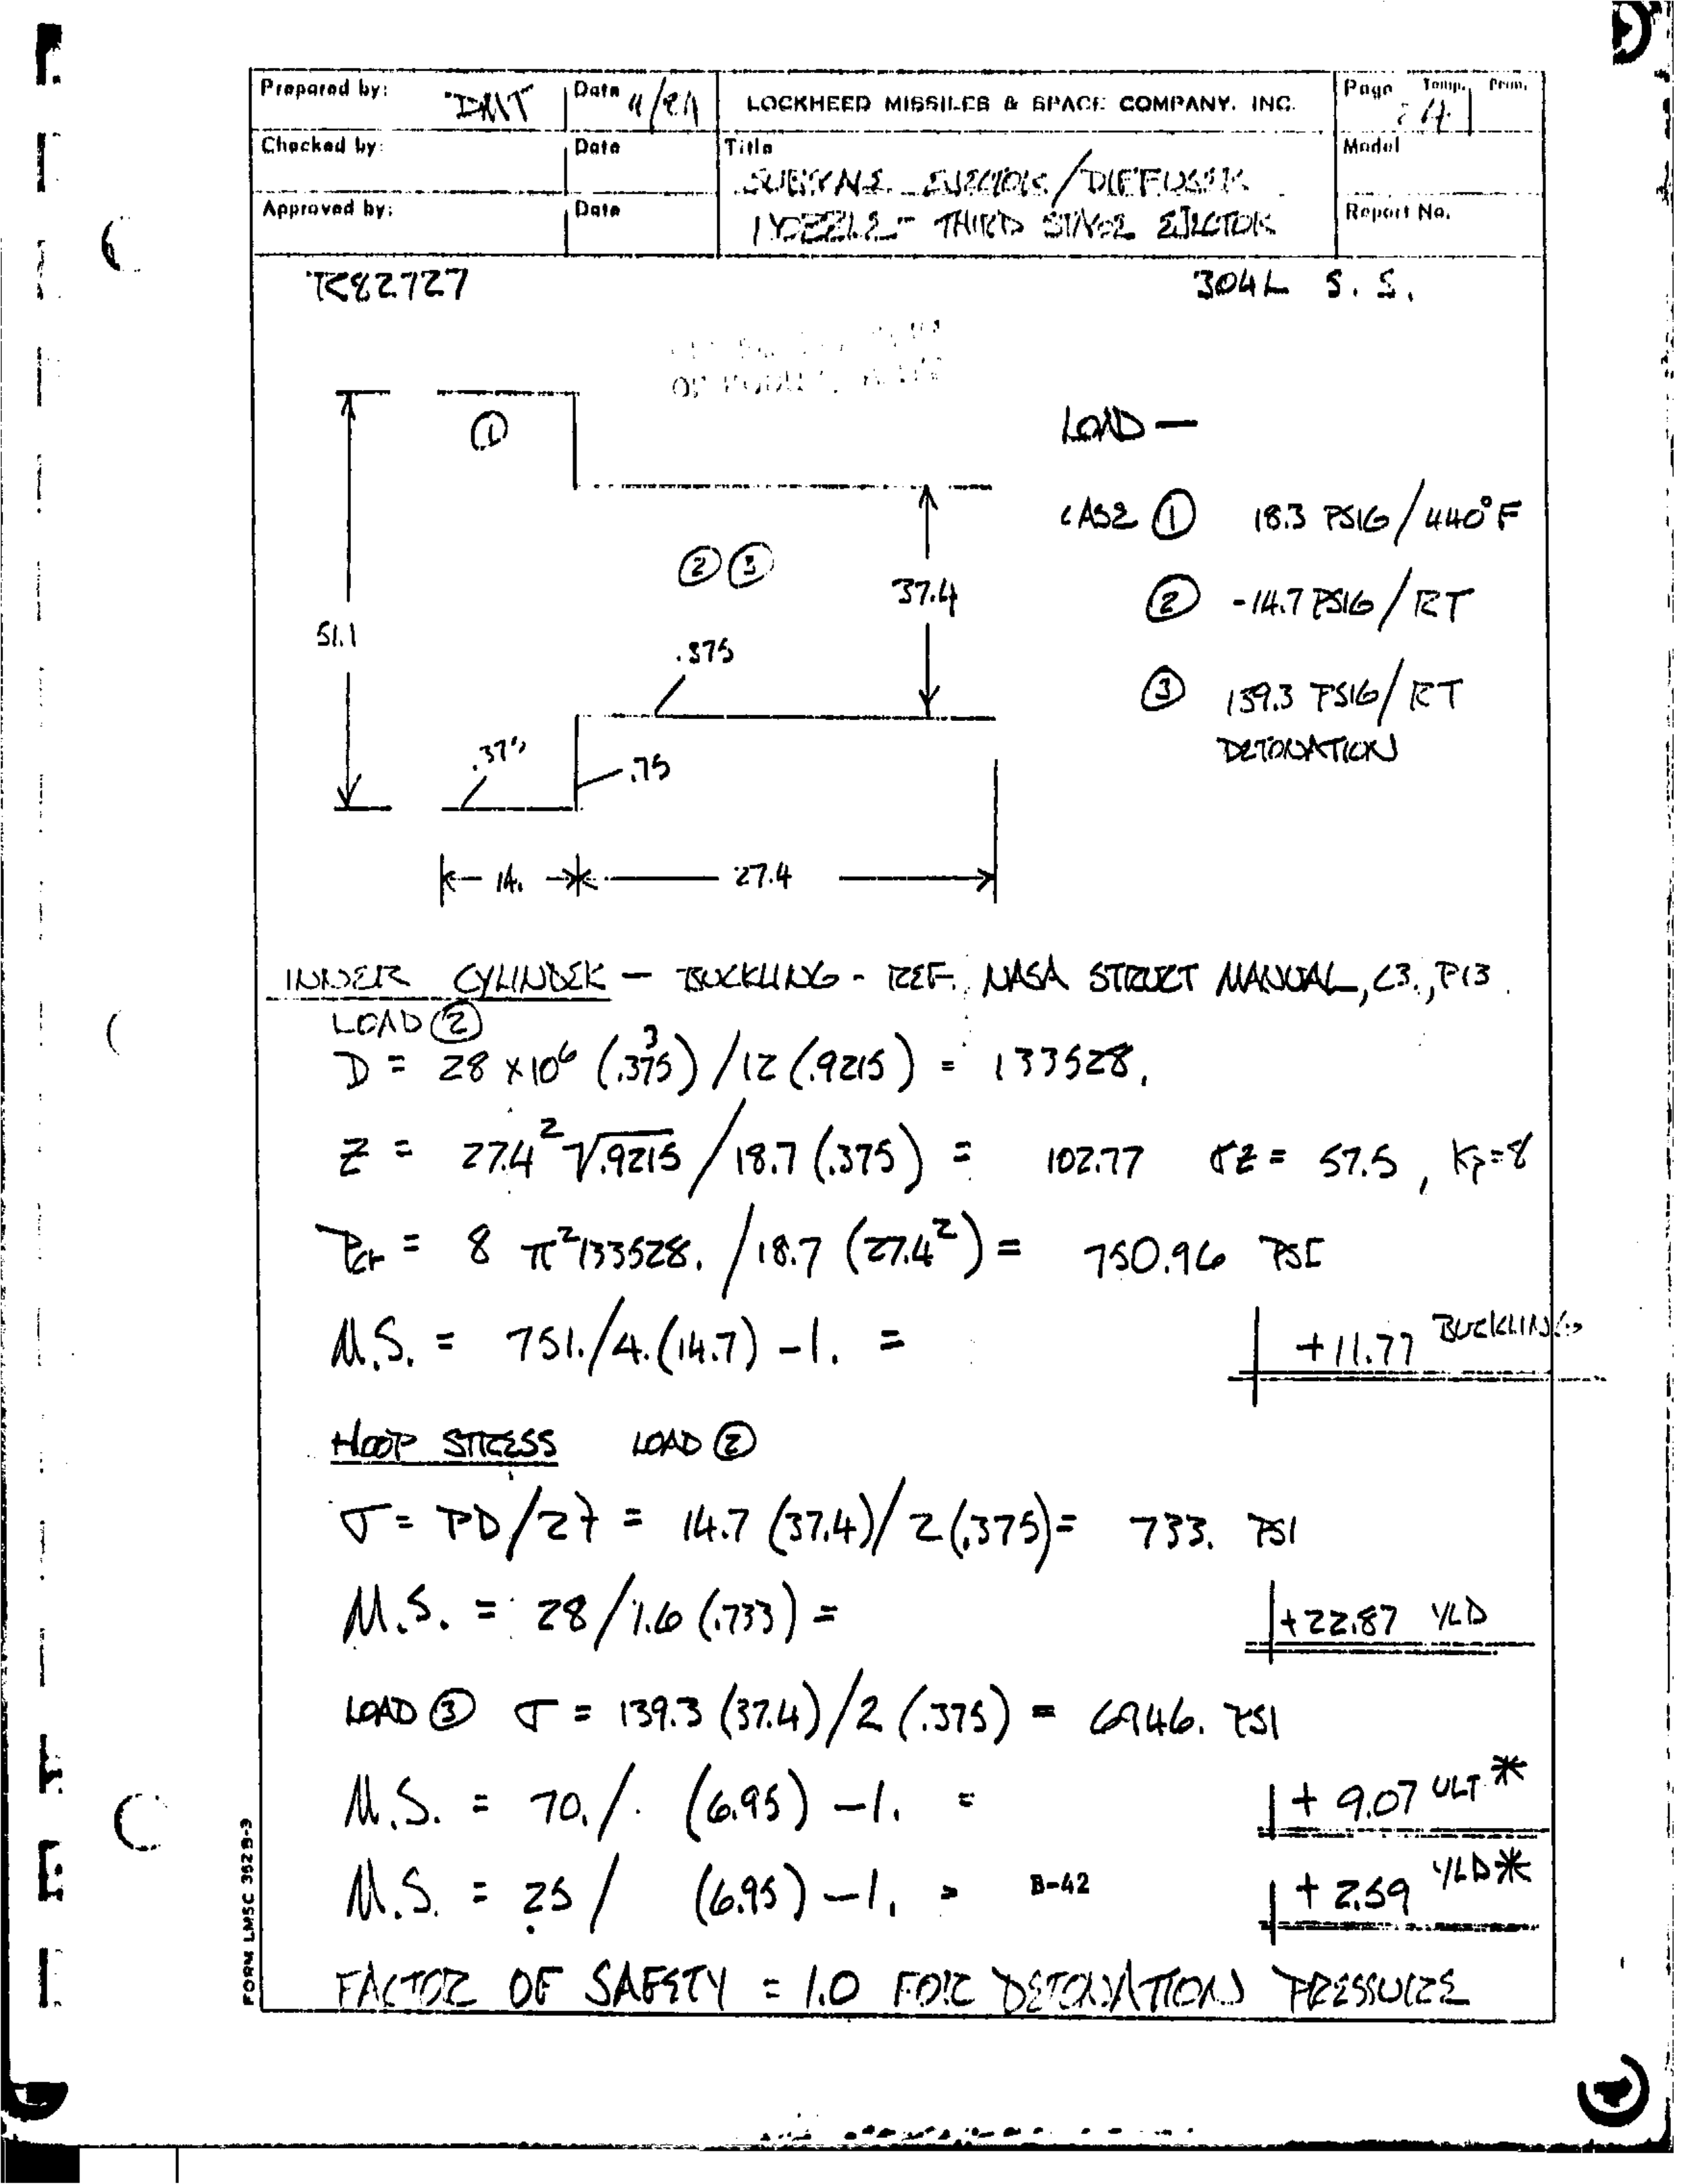 Prepared by: DMT Date LOCKHEED MISSILES & SPACE COMPANY, INC. Page Temp. Perm.
Checked by: Date Title Model
EJECTOR/DIFFUSER
Approved by: Date THIRD STAGE EJECTOR Report No.
R82727 304L S.S.
①
LOAD —
CASE ① 18.3 PSIG/440°F
②③
37.4
② -14.7 PSIG/RT
51.1
.375
③ 139.3 PSIG/RT
DETONATION
.375
.75
14. 27.4
INNER CYLINDER — BUCKLING - REF. NASA STRUCT MANUAL, C3., P13.
LOAD ②
D = 28 x 10⁶ (.375)³/12 (.9215) = 133528.
Z = 27.4² √.9215/18.7 (.375) = 102.77 γZ = 57.5, Kp=8
Pcr = 8 π² 133528./18.7 (27.4²) = 750.96 PSI
M.S. = 751./4.(14.7) -1. = +11.77 BUCKLING
HOOP STRESS LOAD ②
σ = PD/2t = 14.7 (37.4)/2(.375) = 733. PSI
M.S. = 28/1.6 (.733) = +22.87 YLD
LOAD ③ σ = 139.3 (37.4)/2 (.375) = 6946. PSI
M.S. = 70./. (6.95) -1. = + 9.07 ULT *
M.S. = 25/ (6.95) -1. = B-42 + 2.59 YLD *
FACTOR OF SAFETY = 1.0 FOR DETONATION PRESSURE
FORM LMSC 3629-3